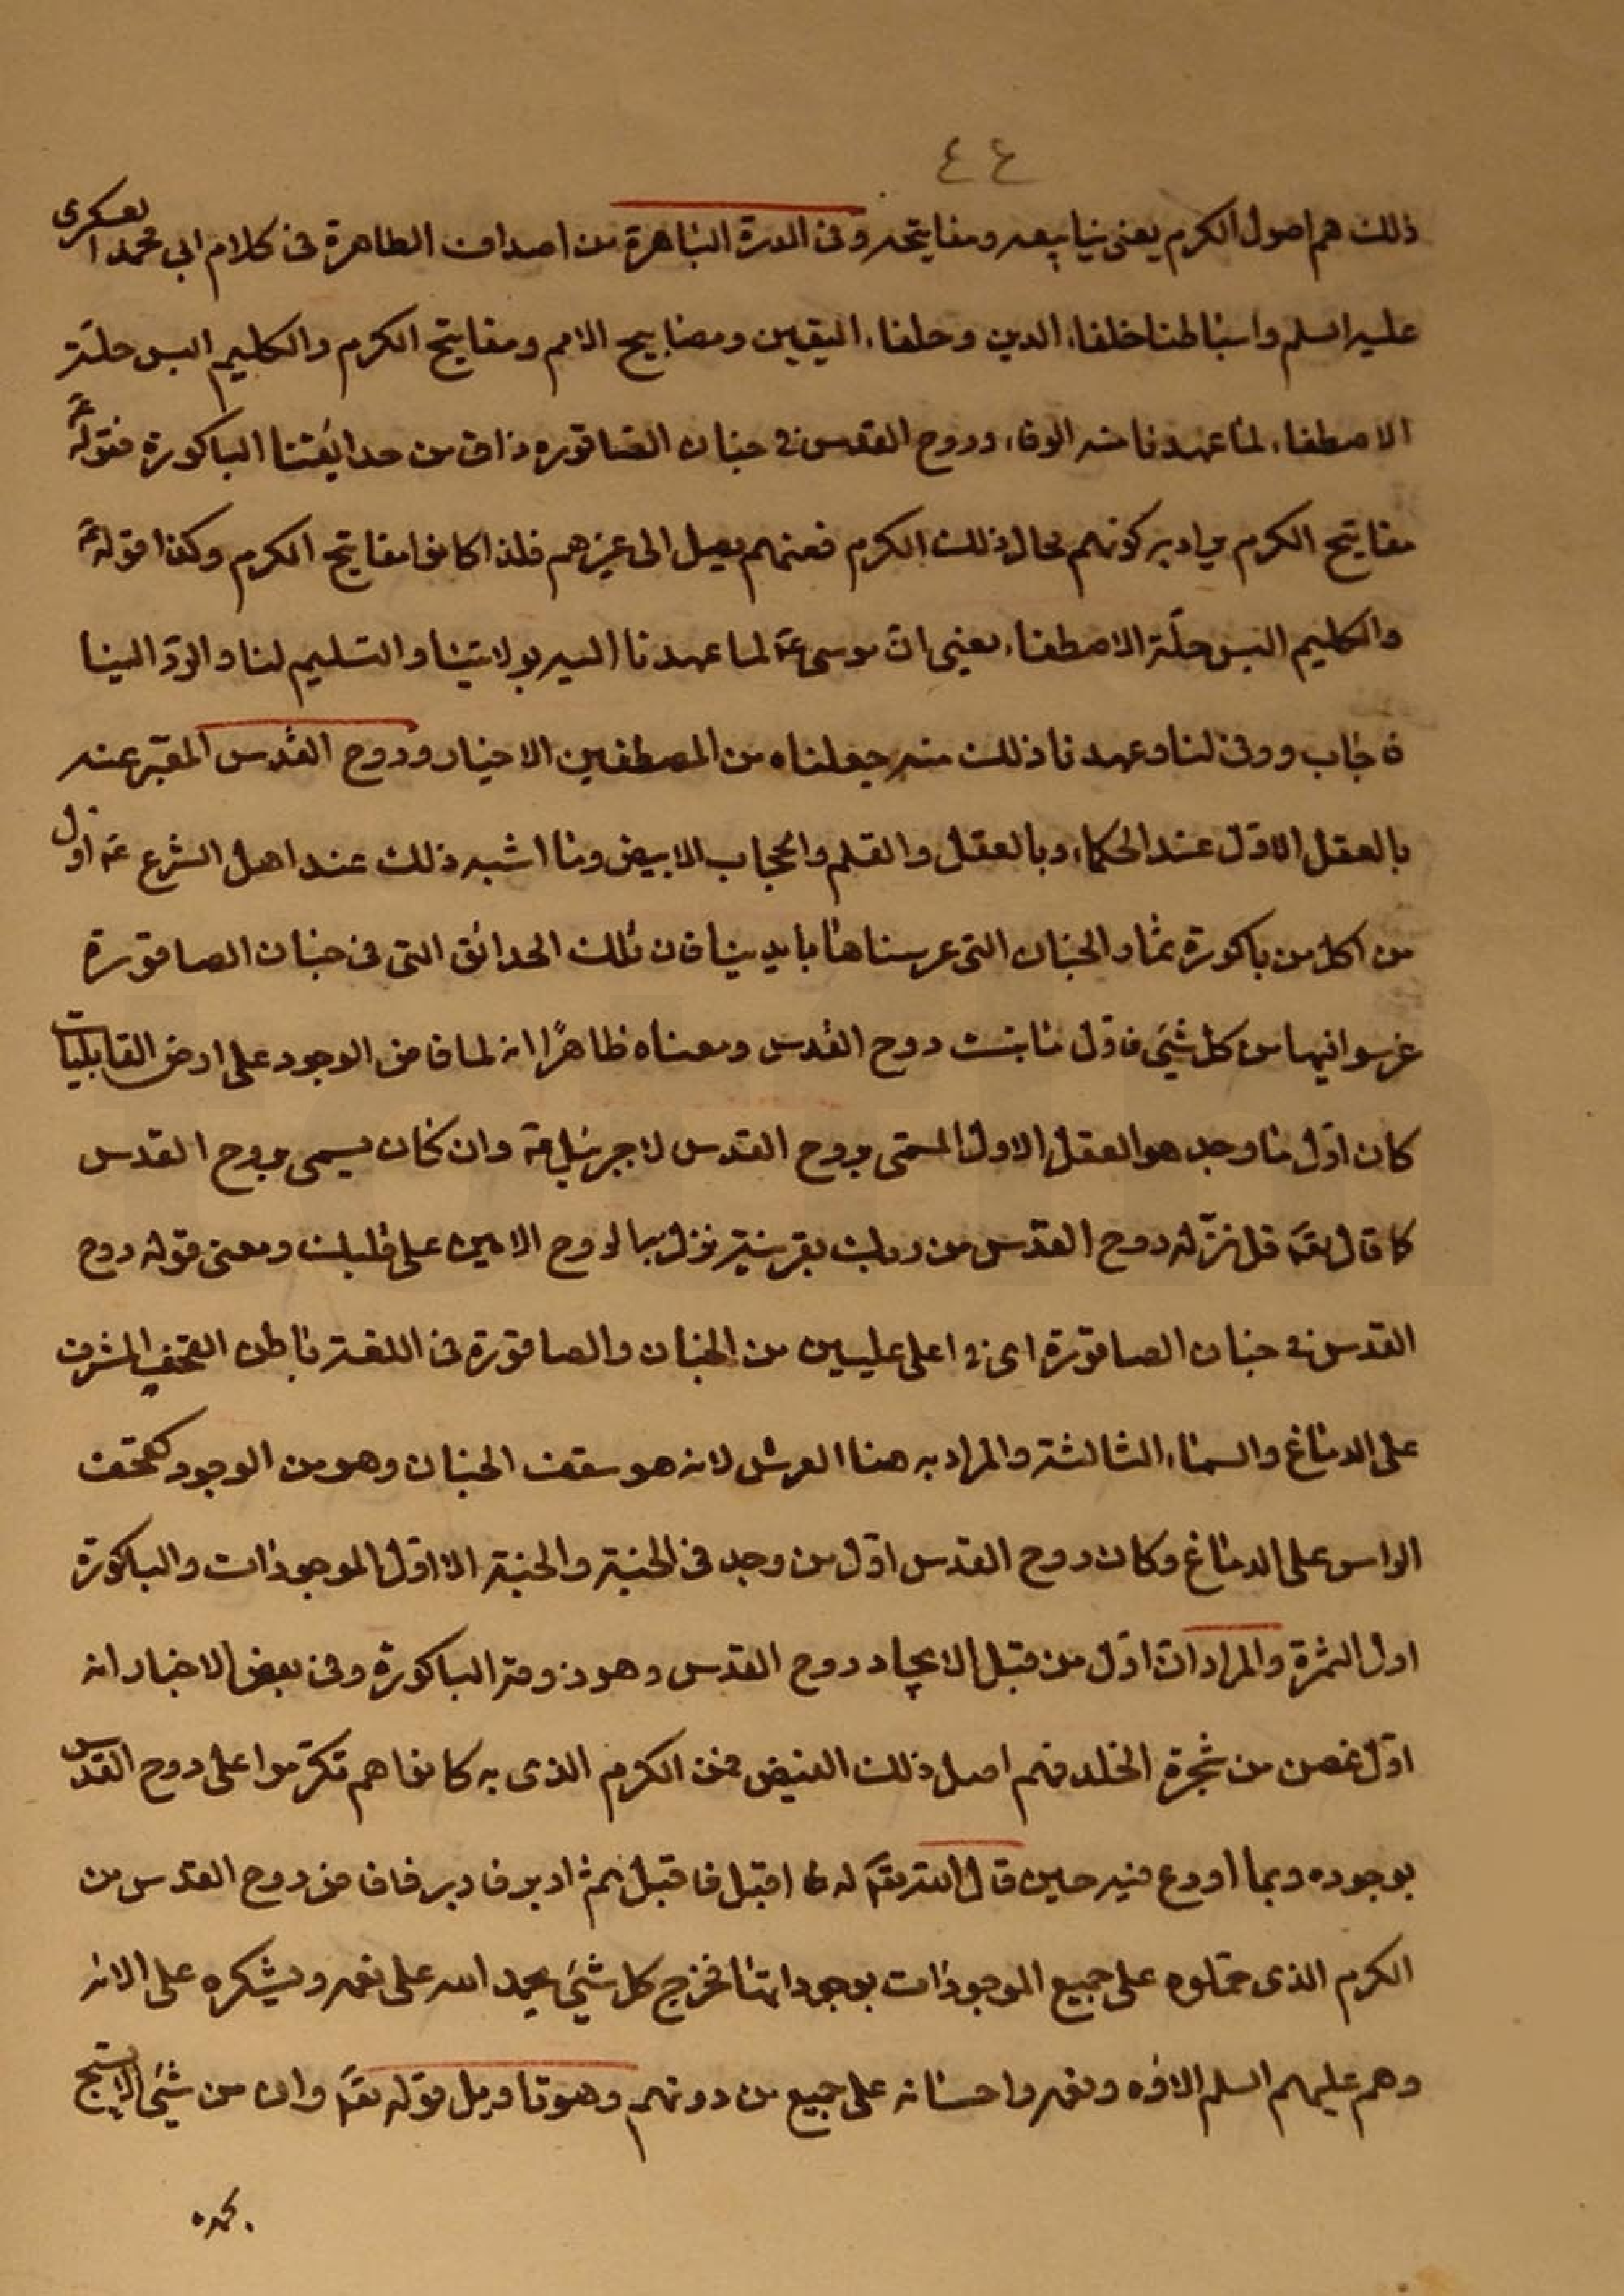 ٤٤
ذلك هم اصول الكرم يعنى ينابيعه ومفاتيحه وفى الدرة الباهرة من اصداف الطاهرة فى كلام ابى محمد العسكرى
عليه السلم واسباطنا خلفاء الدين وحلفاء اليقين ومصابيح الامم ومفاتيح الكرم والكليم البس حلة
الاصطفاء لما عهدنا منه الوفاء وروح القدس فى جنان الصاقوره ذاق من حدايقنا الباكورة فقوله ع
مفاتيح الكرم يراد به كونهم محال ذلك الكرم فعنهم يصل الى غيرهم فلذا كانوا مفاتيح الكرم وكذا قوله ع
والكليم البس حلّة الاصطفاء يعنى انّ موسى ع لما عهدنا اليه بولايتنا والتسليم لنا والردّ الينا
فاجاب ووفى لنا وعهدنا ذلك منه جعلناه من المصطفين الاخيار وروح القدس المعبّر عنه
بالعقل الاوّل عند الحكماء وبالعقل والقلم والحجاب الابيض وما اشبه ذلك عند اهل الشرع ع اول
من اكل من باكورة ثمار الجنان التى غرسناها بايدينا فان تلك الحدائق التى فى جنان الصاقورة
غرسوا فيها من كل شىء فاول ما نبت روح القدس ومعناه ظاهرًا انه لما فاض الوجود على ارض القابليات
كان اوّل ما وجد هو العقل الاول المسمّى بروح القدس لا جبرئيل ع وان كان يسمى بروح القدس
كما قال تع قل نزّله روح القدس من ربك بقرينة نزل به الروح الامين على قلبك ومعنى قوله روح
القدس فى جنان الصاقورة اى فى اعلى عليين من الجنان والصاقورة فى اللغة باطن القحف المشرف
على الدماغ والسماء الثالثة والمراد به هنا العرش لانه هو سقف الجنان وهو من الوجود كقحف
الراس على الدماغ وكان روح القدس اوّل من وجد فى الجنة والجنة الا اوّل الموجودات والباكورة
اول الثمرة والمراد انّ اوّل من قبل الايجاد روح القدس وهو ذوقه الباكورة وفى بعض الاخبار انه
اوّل غصن من شجرة الخلد فهم اصل ذلك الفيض فمن الكرم الذى به كانوا هم تكرّموا على روح القدس
بوجوده وبما اودع فيه حين قال الله تع له اقبل فاقبل ثم ادبر فادبر فافاض روح القدس من
الكرم الذى حمّلوه على جميع الموجودات بوجوداتها فخرج كل شىء يحمد الله على نعمه ويشكره على الائه
وهم عليهم السلم الاؤه ونعمه واحسانه على جميع من دونهم وهو تاويل قوله تع وان من شىء الا يسبح
بحمده